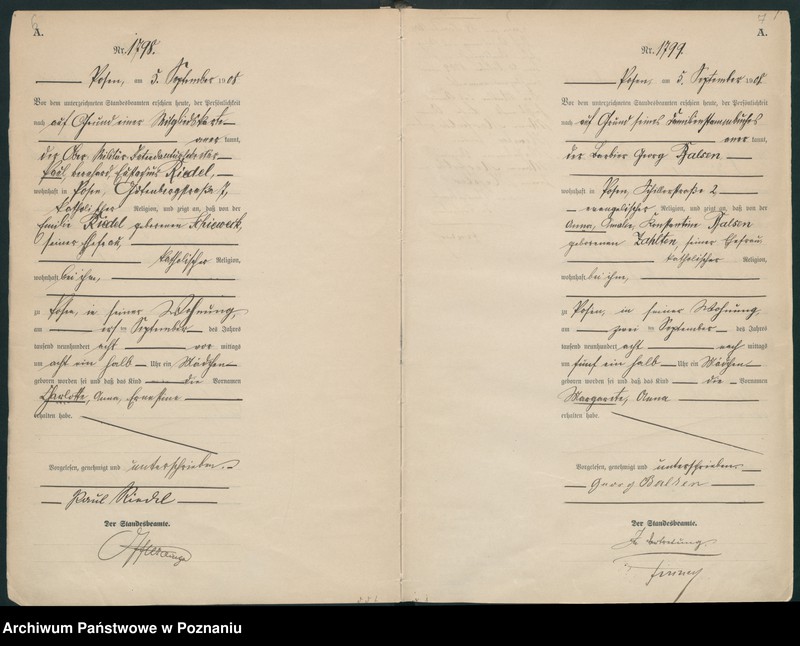 A.
Nr. 1798.
Posen, am 5. September 1908
Vor dem unterzeichneten Standesbeamten erschien heute, der Persönlichkeit
nach auf Grund einer
aner kannt,
der Ober
Paul, Riedel,
wohnhaft in Posen, Gutenbergstraße 7,
katholischer Religion, und zeigte an, daß von der
Emilie Riedel geborenen
seiner Ehefrau,
katholischer Religion,
wohnhaft bei ihm,
zu Posen, in seiner Wohnung
am ersten September des Jahres
tausend neunhundert acht vor mittags
um acht ein halb Uhr ein Mädchen
geboren worden sei und daß das Kind die Vornamen
Charlotte, Anna, Ernestine
erhalten habe.
Vorgelesen, genehmigt und unterschrieben.
Paul Riedel
Der Standesbeamte.
A.
Nr. 1799.
Posen, am 5. September 1908
Vor dem unterzeichneten Standesbeamten erschien heute, der Persönlichkeit
nach auf Grund seines Familienstammbuches
aner kannt,
der Barbier Georg Balsen
wohnhaft in Posen, Schillerstraße 2
evangelischer Religion, und zeigte an, daß von der
Anna, Konstantine Balsen
geborenen seiner Ehefrau
katholischer Religion,
wohnhaft bei ihm,
zu Posen, in seiner Wohnung,
am zwei ten September des Jahres
tausend neunhundert acht nach mittags
um fünf ein halb Uhr ein Mädchen
geboren worden sei und daß das Kind die Vornamen
Margarete, Anna
erhalten habe.
Vorgelesen, genehmigt und unterschrieben
Georg Balsen
Der Standesbeamte.
In Vertretung
Archiwum Państwowe w Poznaniu